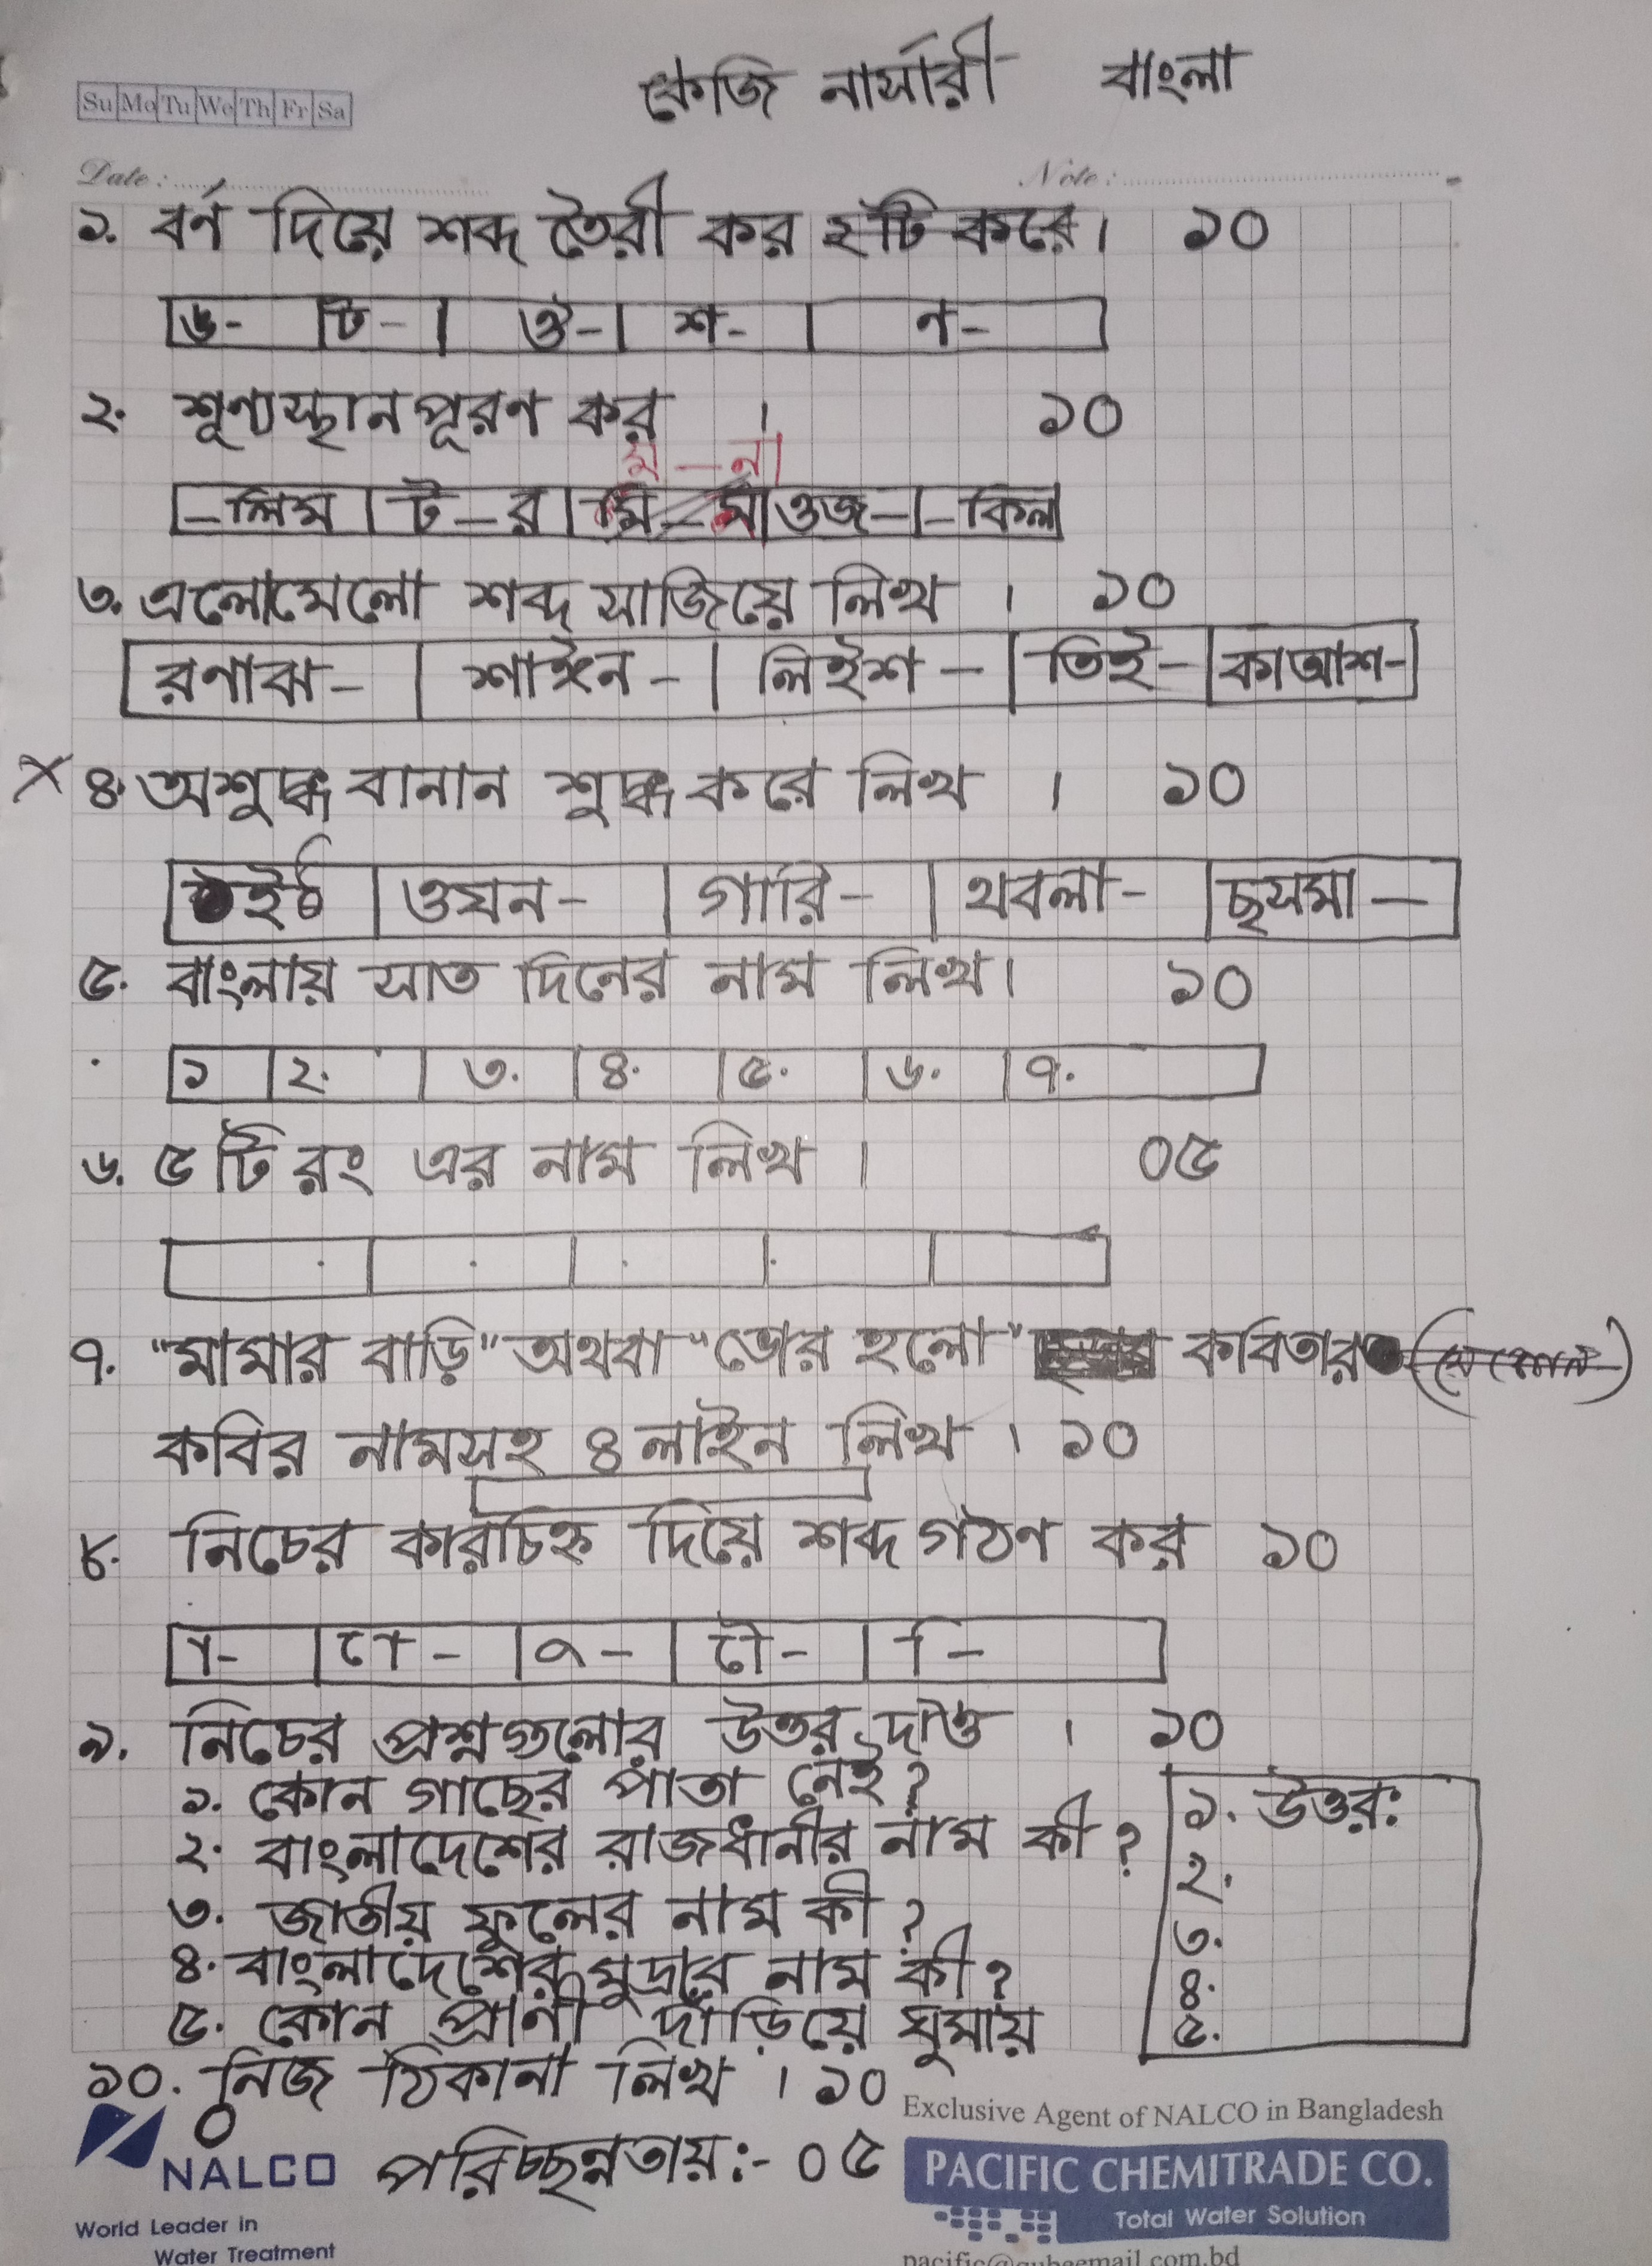 কেজি নার্সারী বাংলা
Su Mo Tu We Th Fr Sa
Date : Note :
১. বর্ন দিয়ে শব্দ তৈরী কর ২টি করে। ১০
ড- ট- ঔ- শ- ন-
২. শূণ্যস্থান পূরণ কর । ১০
ম — না
–লিম ট – র ওজ– –কিল
৩. এলোমেলো শব্দ সাজিয়ে লিখ । ১০
রণাঝ- শাঈন- লিইশ - তিই- কাআশ-
X ৪. অশুদ্ধ বানান শুদ্ধ করে লিখ । ১০
ইঠ ওযন- গারি- থবলা- ছসমা —
৫. বাংলায় সাত দিনের নাম লিখ। ১০
১ ২. ৩. ৪. ৫. ৬. ৭.
৬. ৫ টি রং এর নাম লিখ । ০৫
৭. "মামার বাড়ি" অথবা "ভোর হলো" কবিতার
কবির নামসহ ৪ লাইন লিখ । ১০
৮. নিচের কারচিহ্ন দিয়ে শব্দ গঠণ কর ১০
া- ো - ৃ - ৌ- ি -
৯. নিচের প্রশ্নগুলোর উত্তর দাও । ১০
১. কোন গাছের পাতা নেই?
২. বাংলাদেশের রাজধানীর নাম কী ?
৩. জাতীয় ফুলের নাম কী ?
৪. বাংলাদেশের মুদ্রার নাম কী ?
৫. কোন প্রাণী দাঁড়িয়ে ঘুমায়
১. উত্তর:
২.
৩.
৪.
৫.
১০. নিজ ঠিকানা লিখ । ১০
পরিচ্ছন্নতায়:- ০৫
NALCO
World Leader in
Water Treatment
Exclusive Agent of NALCO in Bangladesh
PACIFIC CHEMITRADE CO.
Total Water Solution